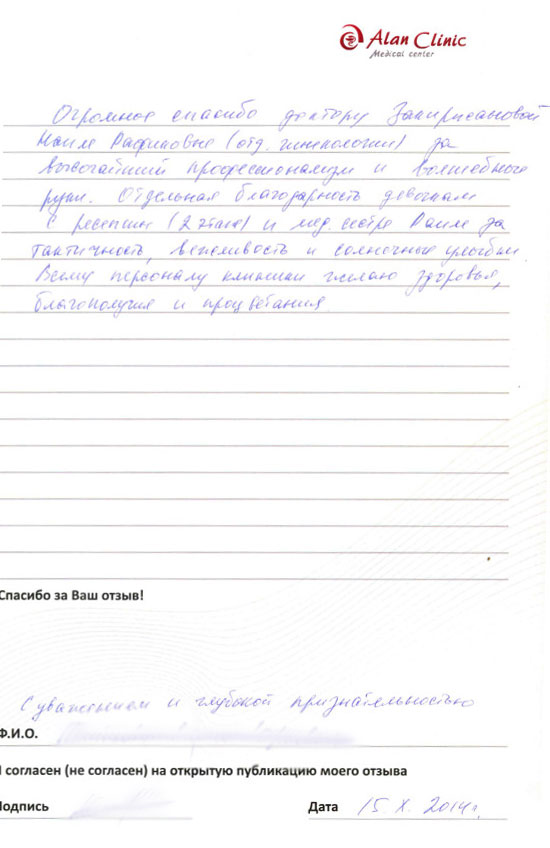 Alan Clinic
Medical center
Огромное спасибо доктору
Наиле Рафиковне (отд. гинекологии) за
высочайший профессионализм и волшебные
руки. Отдельная благодарность девочкам
с ресепшн (2 этаж) и мед. сестре за
тактичность, вежливость и солнечные улыбки.
Всему персоналу клиники желаю здоровья,
благополучия и процветания.
Спасибо за Ваш отзыв!
С уважением и глубокой признательностью
Ф.И.О.
Я согласен (не согласен) на открытую публикацию моего отзыва
Подпись
Дата 15. X. 2014г.